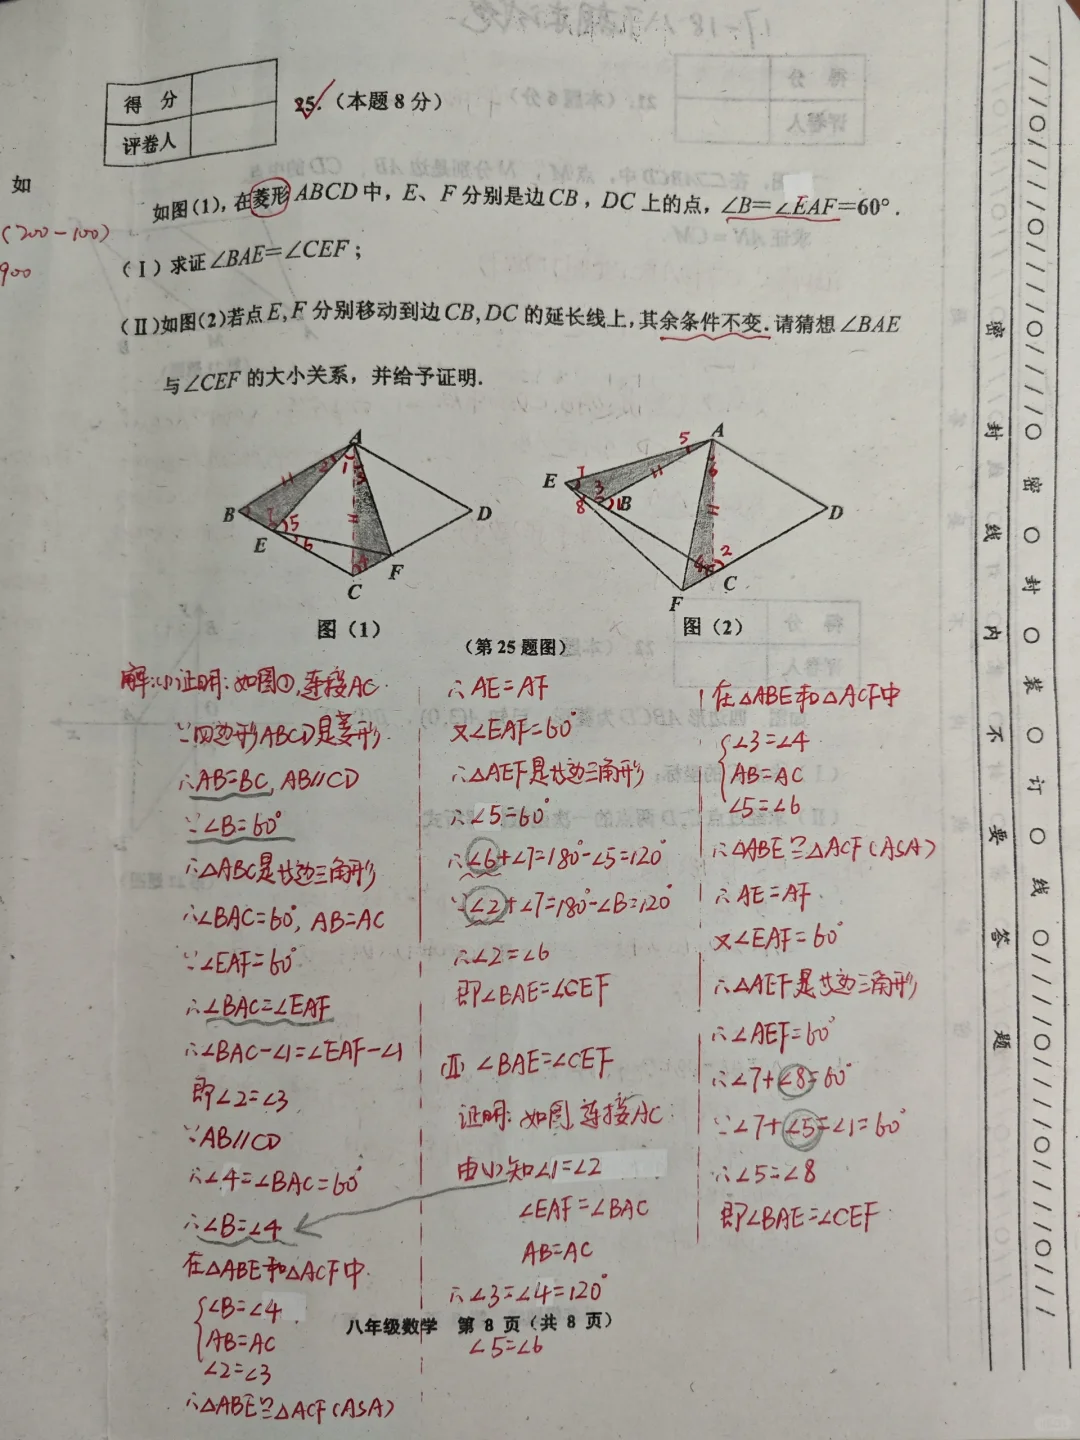 得 分
评卷人
25.(本题8分)
如
(200-100)
900
如图(1),在菱形ABCD中,E、F分别是边CB,DC上的点,∠B=∠EAF=60°.
(Ⅰ)求证∠BAE=∠CEF;
(Ⅱ)如图(2)若点E,F分别移动到边CB,DC的延长线上,其余条件不变.请猜想∠BAE
与∠CEF的大小关系,并给予证明.
A
B
E
C
F
D
2
1
3
7
5
6
4
图(1)
A
E
B
D
F
C
5
6
7
3
8
1
2
4
图(2)
(第25题图)
解:(1)证明:如图①,连接AC
∵四边形ABCD是菱形
∴AB=BC,AB∥CD
∵∠B=60°
∴△ABC是等边三角形
∴∠BAC=60°,AB=AC
∵∠EAF=60°
∴∠BAC=∠EAF
∴∠BAC-∠1=∠EAF-∠1
即∠2=∠3
∵AB∥CD
∴∠4=∠BAC=60°
∴∠B=∠4
在△ABE和△ACF中
∠B=∠4
AB=AC
∠2=∠3
∴△ABE≌△ACF(ASA)
∴AE=AF
又∠EAF=60°
∴△AEF是等边三角形
∴∠5=60°
∴∠6+∠7=180°-∠5=120°
∵∠2+∠7=180°-∠B=120°
∴∠2=∠6
即∠BAE=∠CEF
(Ⅱ)∠BAE=∠CEF
证明:如图,连接AC
由(1)知∠1=∠2
∠EAF=∠BAC
AB=AC
∴∠3=∠4=120°
∠5=∠6
在△ABE和△ACF中
∠3=∠4
AB=AC
∠5=∠6
∴△ABE≌△ACF(ASA)
∴AE=AF
又∠EAF=60°
∴△AEF是等边三角形
∴∠AEF=60°
∴∠7+∠8=60°
∵∠7+∠5=∠1=60°
∴∠5=∠8
即∠BAE=∠CEF
八年级数学 第8页(共8页)
密 封 线 内 不 要 答 题
密 封 装 订 线